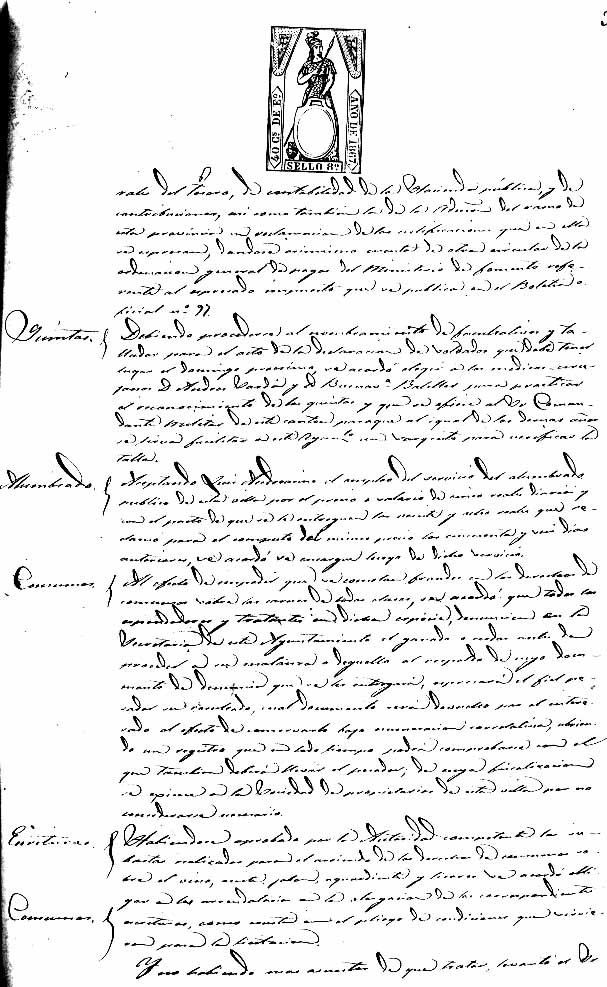 40 Cs DE Eo
AÑO DE 1867
SELLO 8o
rales del Tesoro, de contabilidad de la Hacienda pública, y de
contribuciones, asi como tambien la de la Admon del ramo de
esta provincia en reclamacion de las notificaciones que en ella
se espresan, dandose asimismo cuenta de otra circular de la
ordenacion general de pagos del Ministerio de fomento refe-
rente al espresado impuesto que se publica en el Boletin o-
ficial no 97.
Quintas. Debiendo procederse al nombramiento de facultativos y ta-
lladores para el acto de la declaracion de soldados que debe tener
lugar el domingo procsimo, se acordó elegir a los medicos-ciru-
janos D. Andres y D. Buenava para practicar
el reconocimiento de los quintos y que se oficie al Sr Coman-
dante Militar de este canton para que al igual de los demas años
se sirva facilitar a este Ayunto un sargento para verificar la
talla.
Alumbrado. Aceptando el empleo del servicio del alumbrado
publico de esta villa por el precio o salario de cinco reales diarios y
con el pacto de que se le entreguen los veinte y ocho reales que re-
clamó para el computo del mismo precio los cincuenta y seis dias
anteriores, se acordó se encargue luego de dicho servicio.
Consumos. Al efecto de impedir que se cometan fraudes en los derechos de
consumos sobre las carnes de todas clases, se acordó que todos los
espendedores y tratantes en dicha especie, denuncien en la
Secretaria de este Ayuntamiento el ganado o cerdos antes de
proceder a su matanza o deguello al respaldo de cuyo docu-
mento de denuncia que se les entregará, espresará el fiel pe-
sador su resultado, cual documento será devuelto por el intere-
sado al efecto de conservarlo bajo numeracion correlativa, abrien-
do un registro que en todo tiempo podrá comprobarse con el
que tambien deberá llevar el pesador, de cuya fiscalizacion
se exime a la Sociedad de propietarios de esta villa por no
considerarse necesario.
Escrituras. Habiendose aprobado por la Autoridad competente las su-
bastas realizadas para el arriendo de los derechos de consumos so-
bre el vino, aceite, jabon, aguardiente y licores se acordó obli-
Consumos. gar a los arrendatarios en la otorgacion de las correspondientes
escrituras, como consta en el pliego de condiciones que sirvie-
ron para la licitacion.
Y no habiendo mas asuntos de que tratar, levantó el Sr